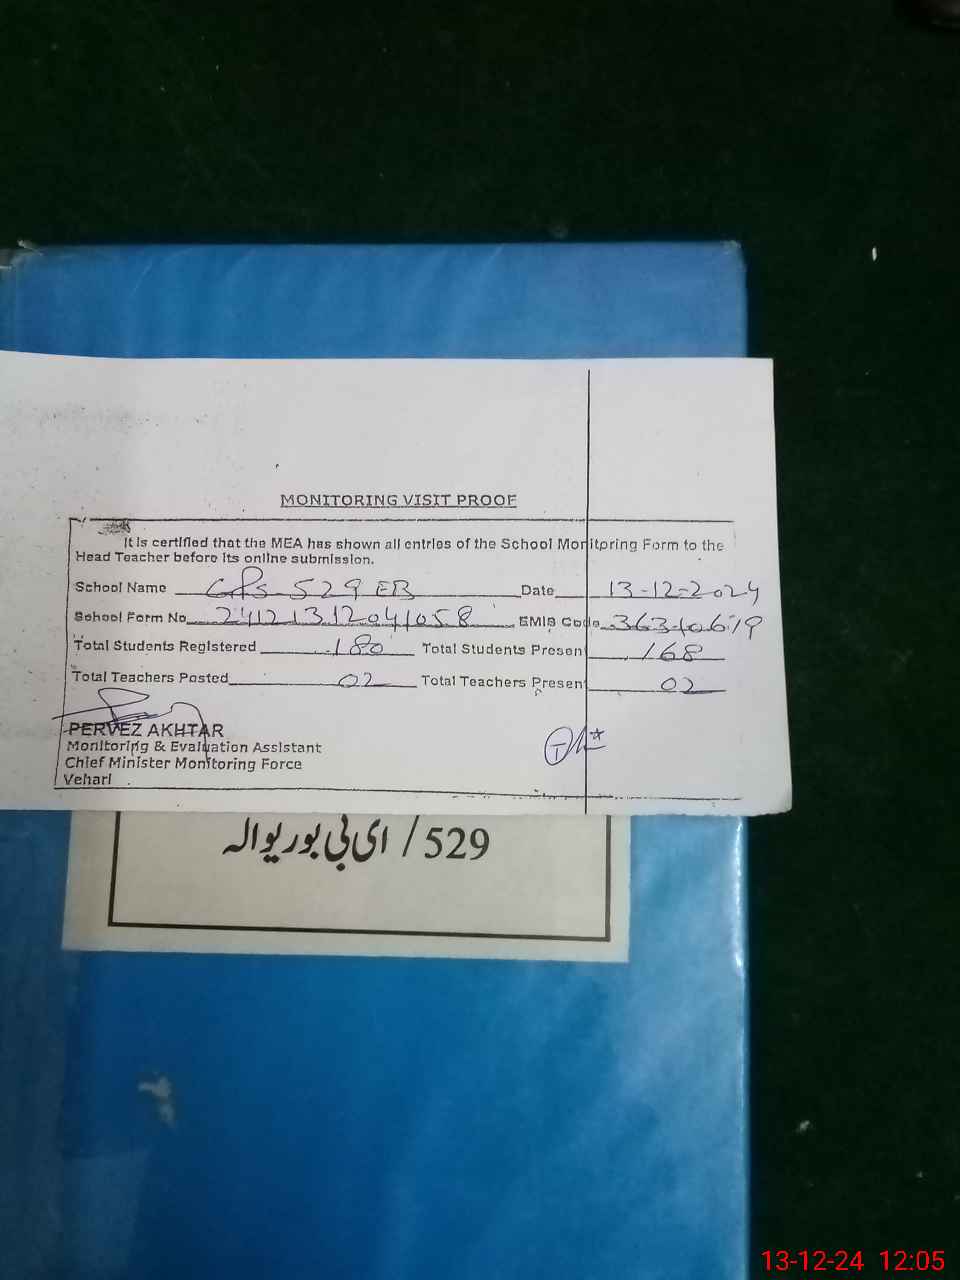 MONITORING VISIT PROOF
It is certified that the MEA has shown all entries of the School Monitoring Form to the
Head Teacher before its online submission.
School Name GPS 529 EB Date 13-12-2024
School Form No 24121312041058 EMIS Code 36310619
Total Students Registered 180 Total Students Present 168
Total Teachers Posted 02 Total Teachers Present 02
PERVEZ AKHTAR
Monitoring & Evaluation Assistant
Chief Minister Monitoring Force
Vehari
529/ ای بی بوریوالہ
13-12-24 12:05